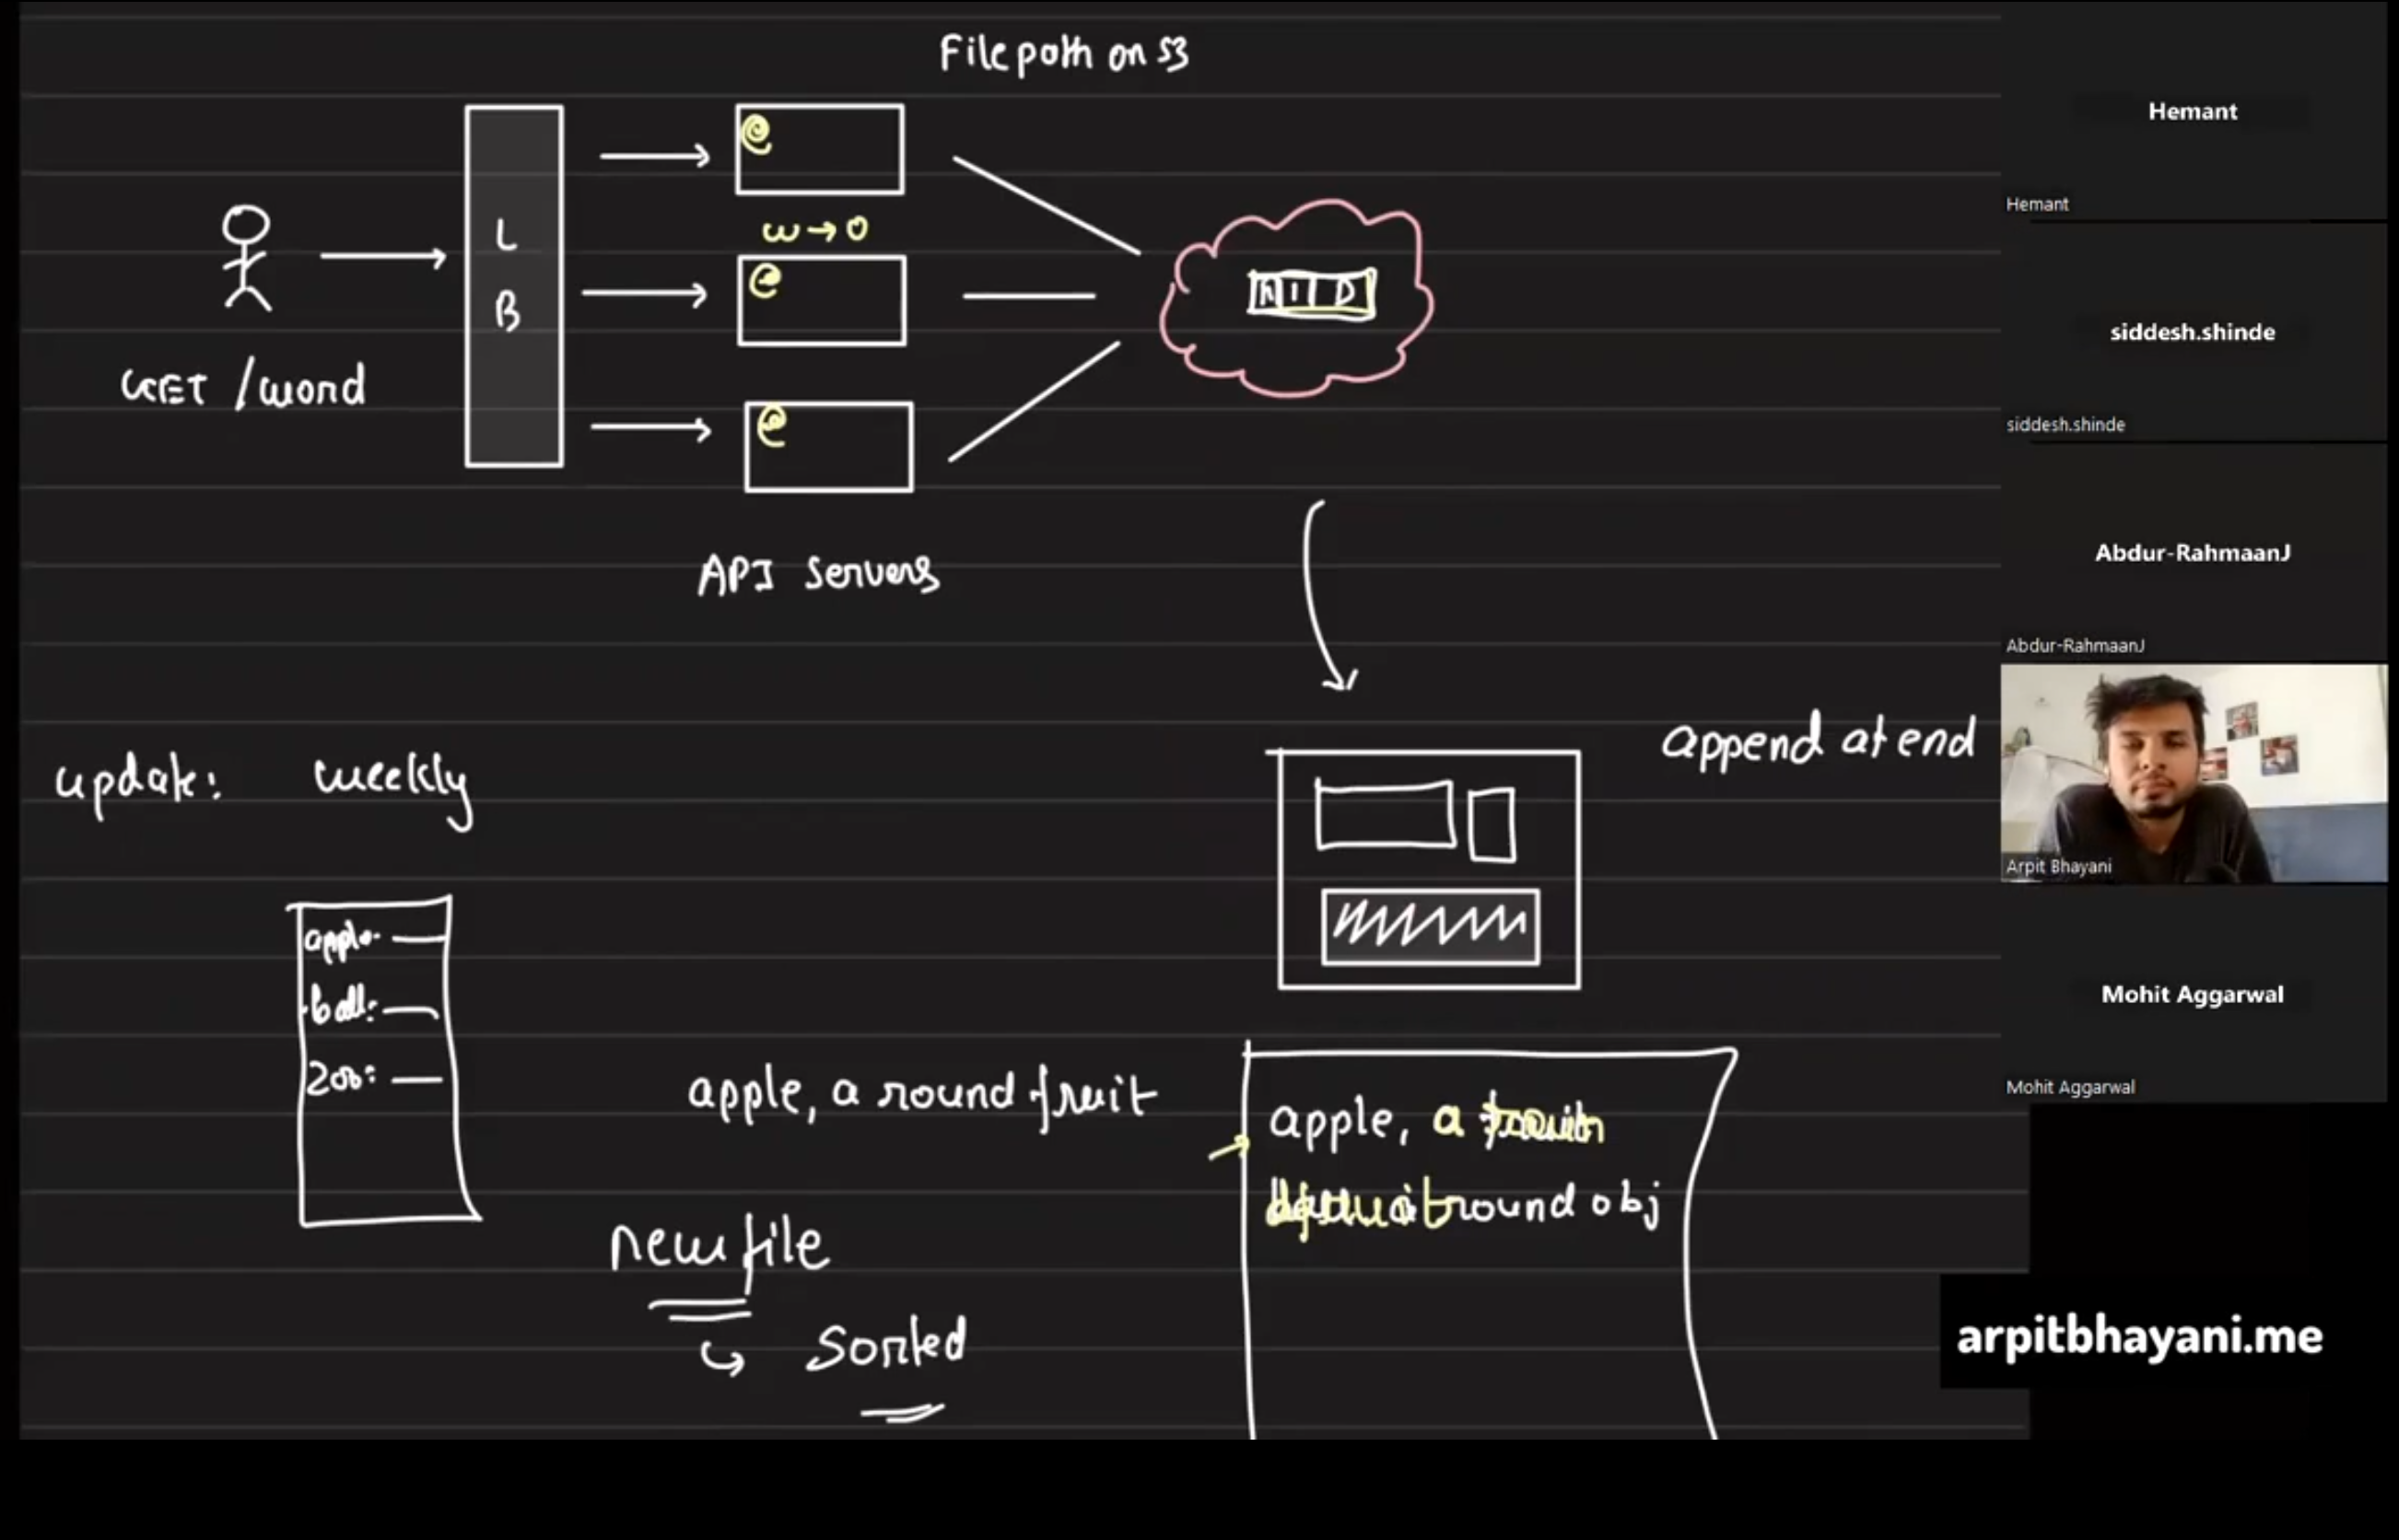 File path on S3
L
B
GET /word
w → o
H I D
API servers
update: weekly
append at end
apple:
ball:
zoo:
apple, a round fruit
apple, a
round obj
new file
↪ Sorted
Hemant
Hemant
siddesh.shinde
siddesh.shinde
Abdur-RahmaanJ
Abdur-RahmaanJ
Arpit Bhayani
Mohit Aggarwal
Mohit Aggarwal
arpitbhayani.me